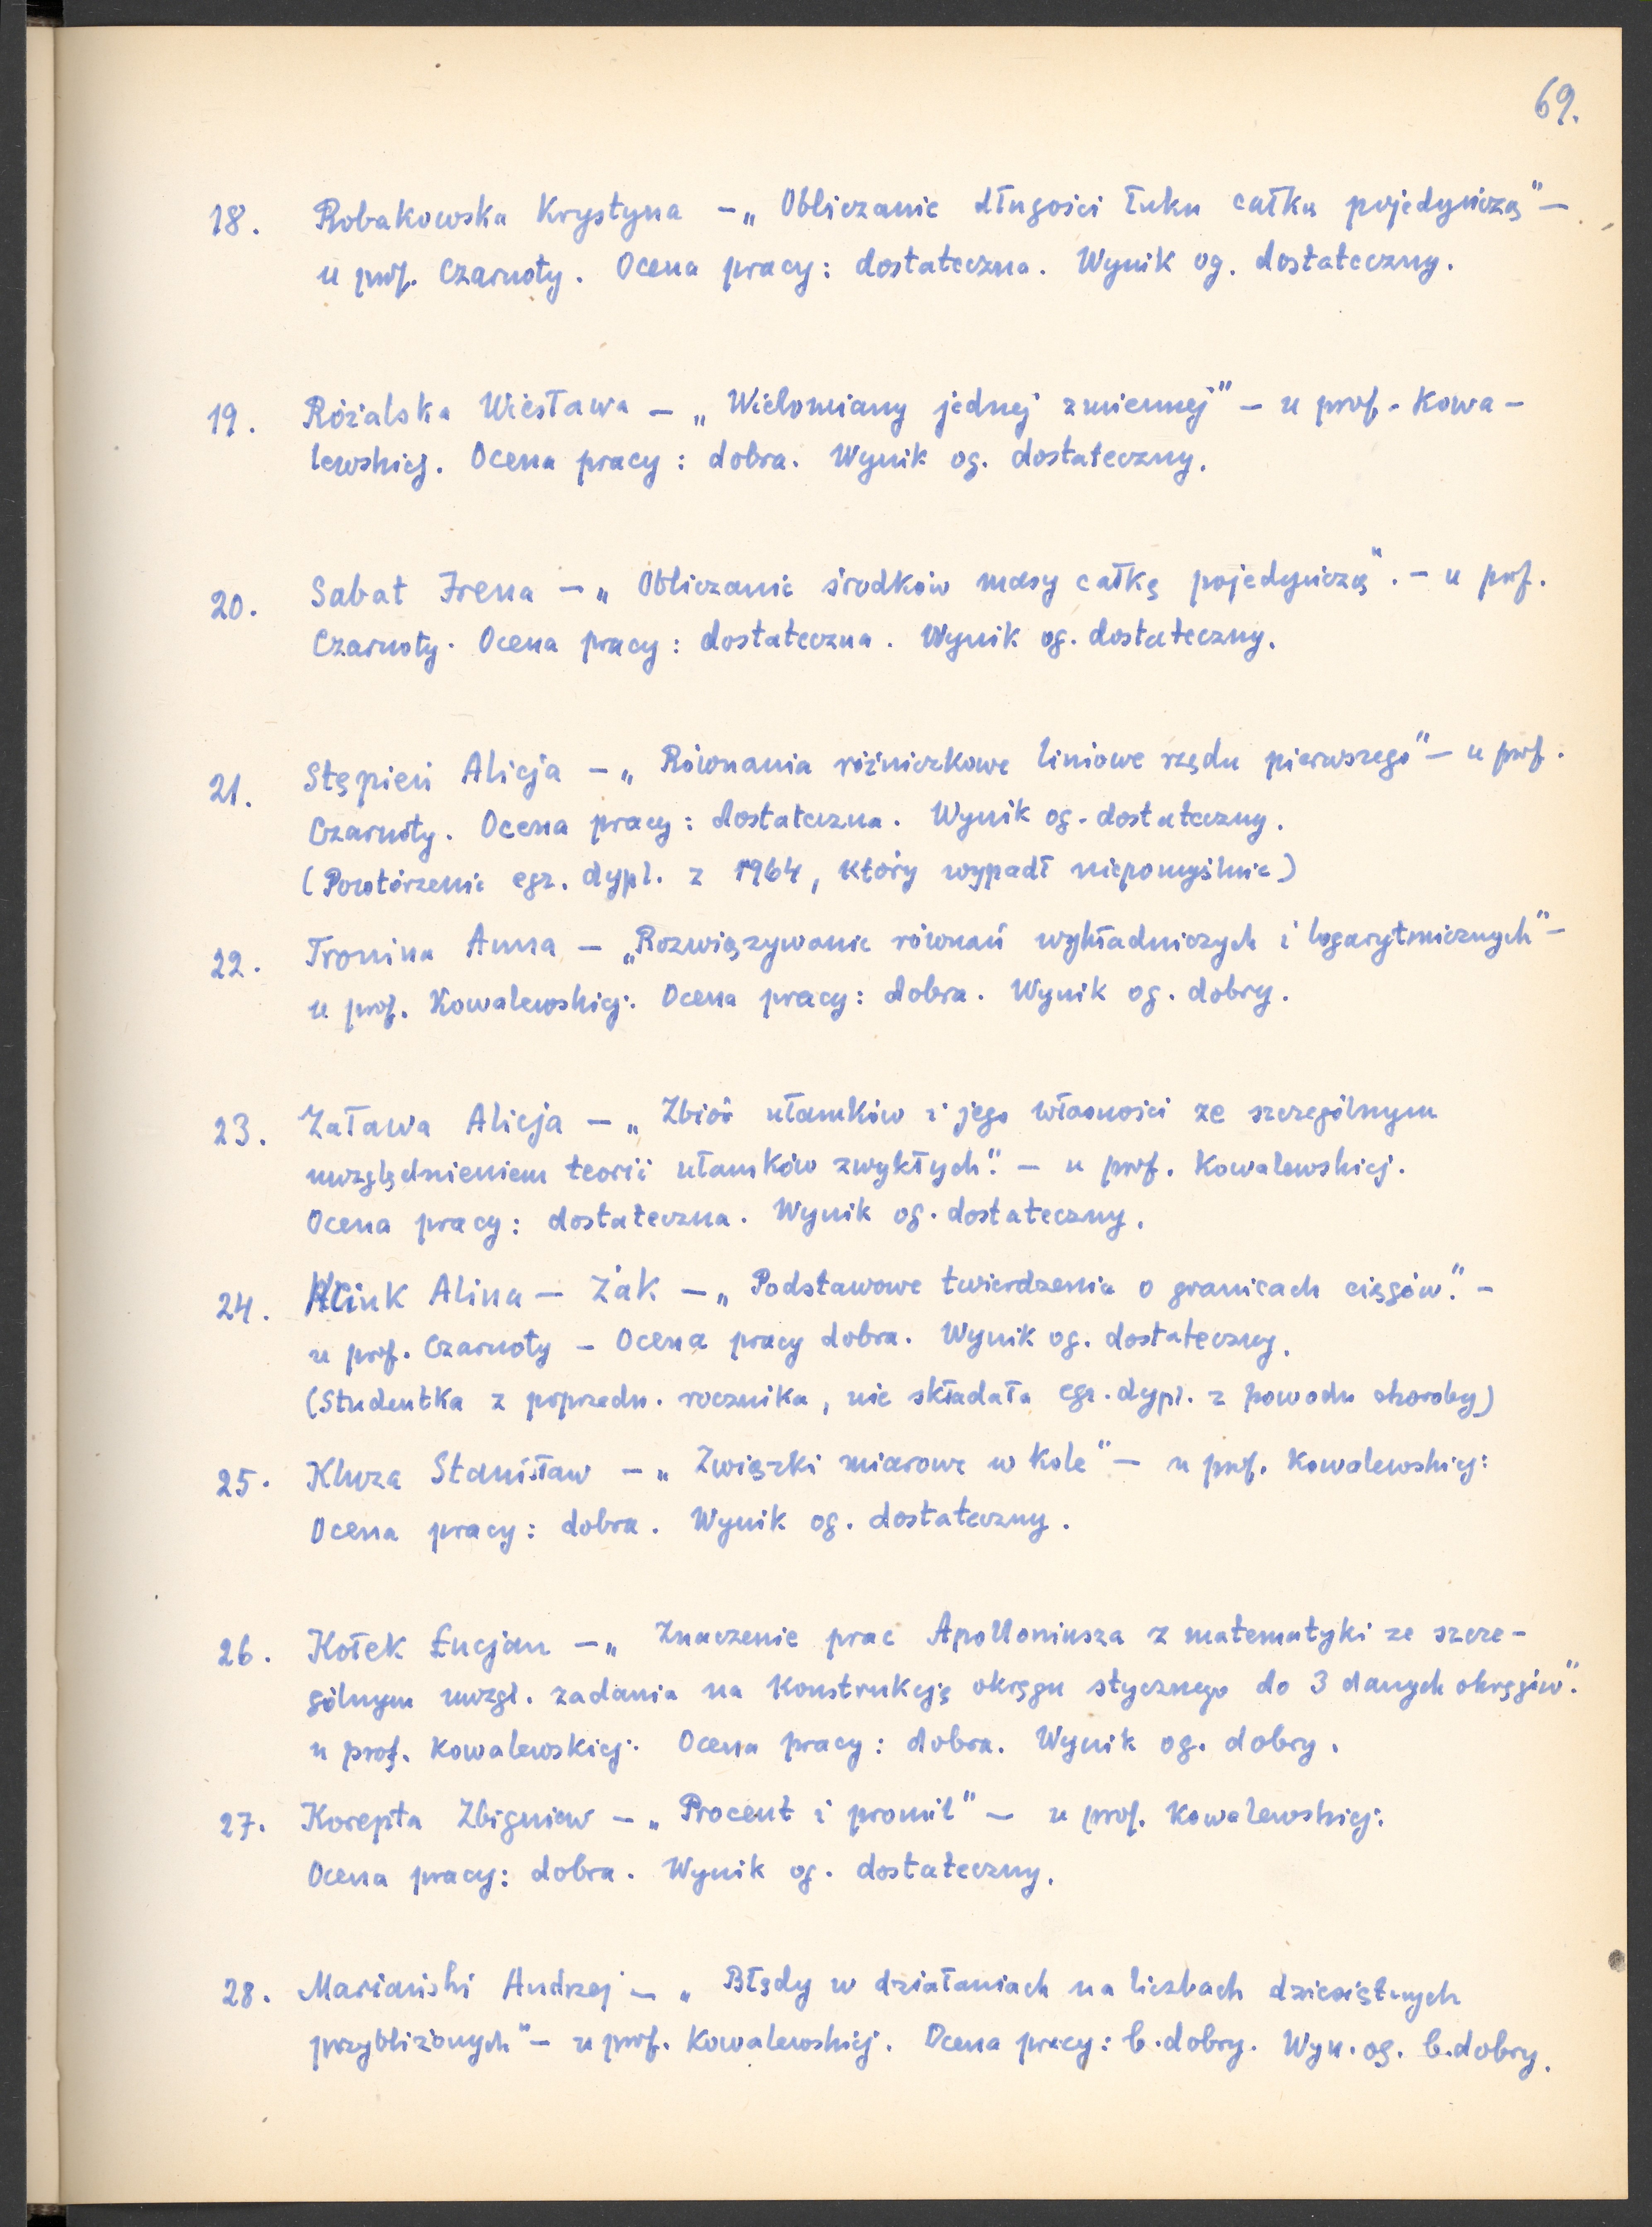 69.
18. Robakowska Krystyna – „Obliczanie długości łuku całką pojedynczą” –
u prof. Czarnoty. Ocena pracy: dostateczna. Wynik og. dostateczny.
19. Różalska Wiesława – „Wielomiany jednej zmiennej” – u prof. Kowa-
lewskiej. Ocena pracy: dobra. Wynik og. dostateczny.
20. Sabat Irena – „Obliczanie środków masy całką pojedynczą”. – u prof.
Czarnoty. Ocena pracy: dostateczna. Wynik og. dostateczny.
21. Stępień Alicja – „Równania różniczkowe liniowe rzędu pierwszego” – u prof.
Czarnoty. Ocena pracy: dostateczna. Wynik og. dostateczny.
(Powtórzenie egz. dypl. z 1964, który wypadł niepomyślnie)
22. Tronina Anna – „Rozwiązywanie równań wykładniczych i logarytmicznych” –
u prof. Kowalewskiej. Ocena pracy: dobra. Wynik og. dobry.
23. Zaława Alicja – „Zbiór ułamków i jego własności ze szczególnym
uwzględnieniem teorii ułamków zwykłych”. – u prof. Kowalewskiej.
Ocena pracy: dostateczna. Wynik og. dostateczny.
24. Alina – Żak – „Podstawowe twierdzenia o granicach ciągów”. –
u prof. Czarnoty – Ocena pracy dobra. Wynik og. dostateczny.
(Studentka z poprzedn. rocznika, nie składała egz. dypl. z powodu choroby)
25. Kluza Stanisław – „Związki miarowe w kole” – u prof. Kowalewskiej.
Ocena pracy: dobra. Wynik og. dostateczny.
26. Kołek Łucjan – „Znaczenie prac Apolloniusza z matematyki ze szcze-
gólnym uwzgl. zadania na konstrukcję okręgu stycznego do 3 danych okręgów”.
u prof. Kowalewskiej. Ocena pracy: dobra. Wynik og. dobry.
27. Korepta Zbigniew – „Procent i promil” – u prof. Kowalewskiej.
Ocena pracy: dobra. Wynik og. dostateczny.
28. Mariański Andrzej – „Błędy w działaniach na liczbach dziesiętnych
przybliżonych” – u prof. Kowalewskiej. Ocena pracy: b.dobry. Wyn. og. b.dobry.